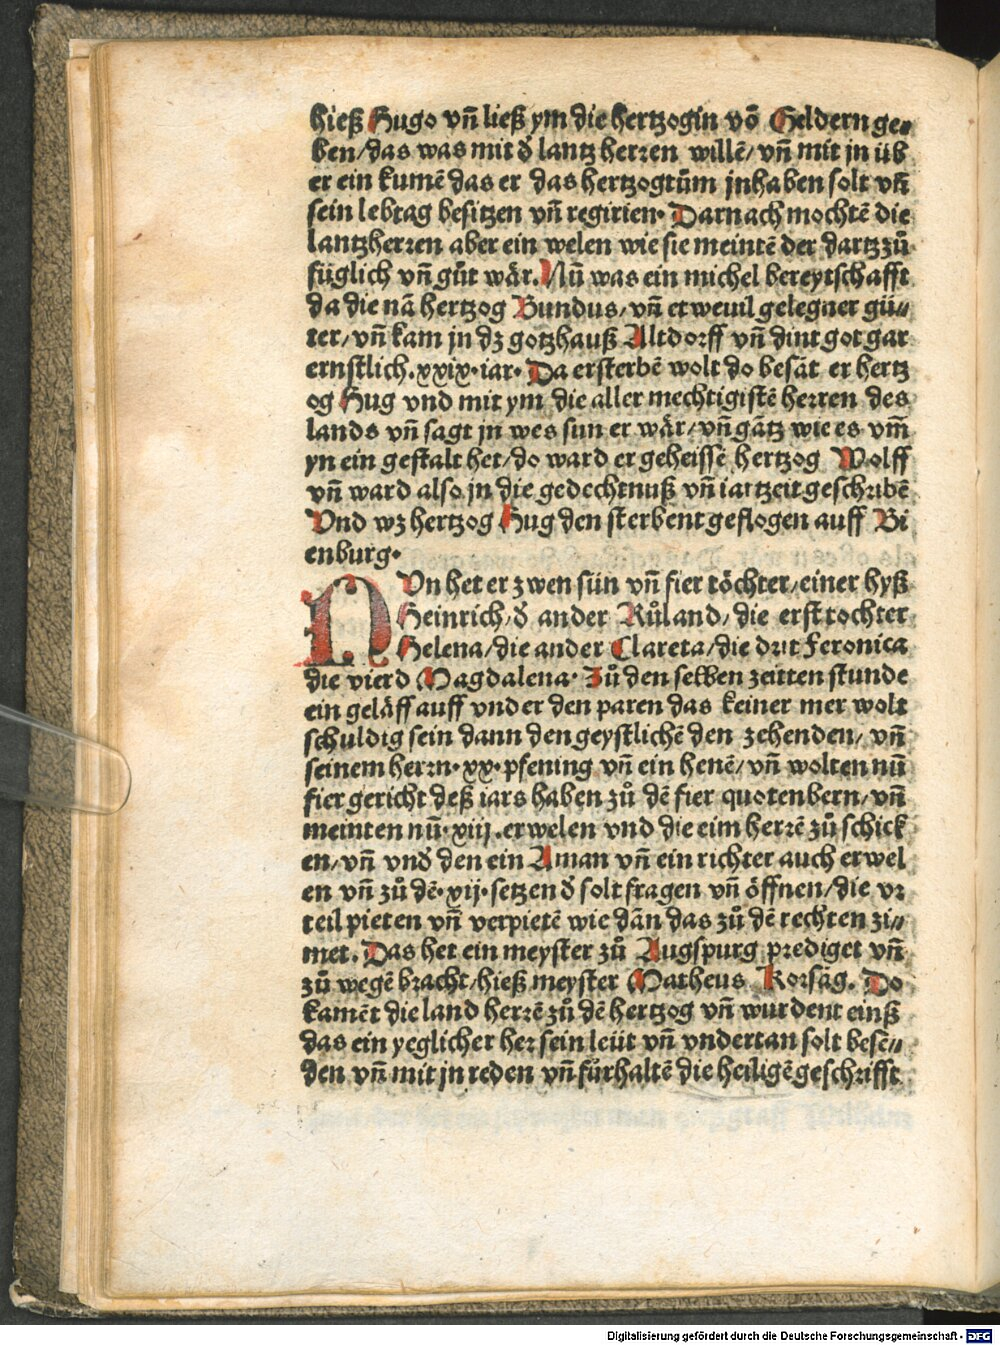 hieß Hugo vn̄ ließ ym die hertzogin vō Geldern ge⸗
ben/das was mit d̕ lantz herren willē/vn̄ mit jn üb
er ein kumē das er das hertzogtům jnhaben solt vn̄
sein lebtag besitzen vn̄ regirien. Darnach mochtē die
lantzherren aber ein welen wie sie meintē der dartzzů
füglich vn̄ gůt wår. Nū was ein michel bereytschafft
da die nā hertzog Bundus/vn̄ etweuil gelegner gü⸗
ter/vn̄ kam jn dz gotzhauß Altdorff vn̄ dint got gar
ernstlich.xxix.iar. Da er sterbē wolt do besāt er hertz
og Hug vnd mit ym die aller mechtigistē herren des
lands vn̄ sagt jn wes sun er wår/vn̄ gātz wie es vm̄
yn ein gestalt het/do ward er geheissē hertzog Wolff
vn̄ ward also jn die gedechtnuß vn̄ iartzeit geschribē
Vnd wz hertzog Hug den sterbent geflogen auff Bi
enburg.
NVn het er zwen sün vn̄ fier töchter/einer hyß
Heinrich/d̕ ander Růland/die erst tochter
Helena/die ander Clareta/die drit Feronica
die vierd Magdalena. Zů den selben zeitten stunde
ein geläff auff vnder den paren das keiner mer wolt
schuldig sein dann den geystlichē den zehenden/vn̄
seinem herrn.xx.pfening vn̄ ein henē/vn̄ wolten nū
fier gericht deß iars haben zů dē fier quotenbern/vn̄
meinten nū.xiij.erwelen vnd die eim herrē zů schick
en/vn̄ vnd̕ den ein Aman vn̄ ein richter auch erwel
en vn̄ zů dē.xij.setzen d̕ solt fragen vn̄ öffnen/die vr
teil pieten vn̄ verpietē wie dān das zů dē rechten zi⸗
met. Das het ein meyster zů Augspurg prediget vn̄
zů wegē bracht/hieß meyster Matheus Korsāg. Do
kamēt die land herrē zů dē hertzog vn̄ wurdent einß
das ein yeglicher her sein leüt vn̄ vndertan solt besē⸗
den vn̄ mit jn reden vn̄ fürhaltē die heiligē geschrifft
Digitalisierung gefördert durch die Deutsche Forschungsgemeinschaft - DFG